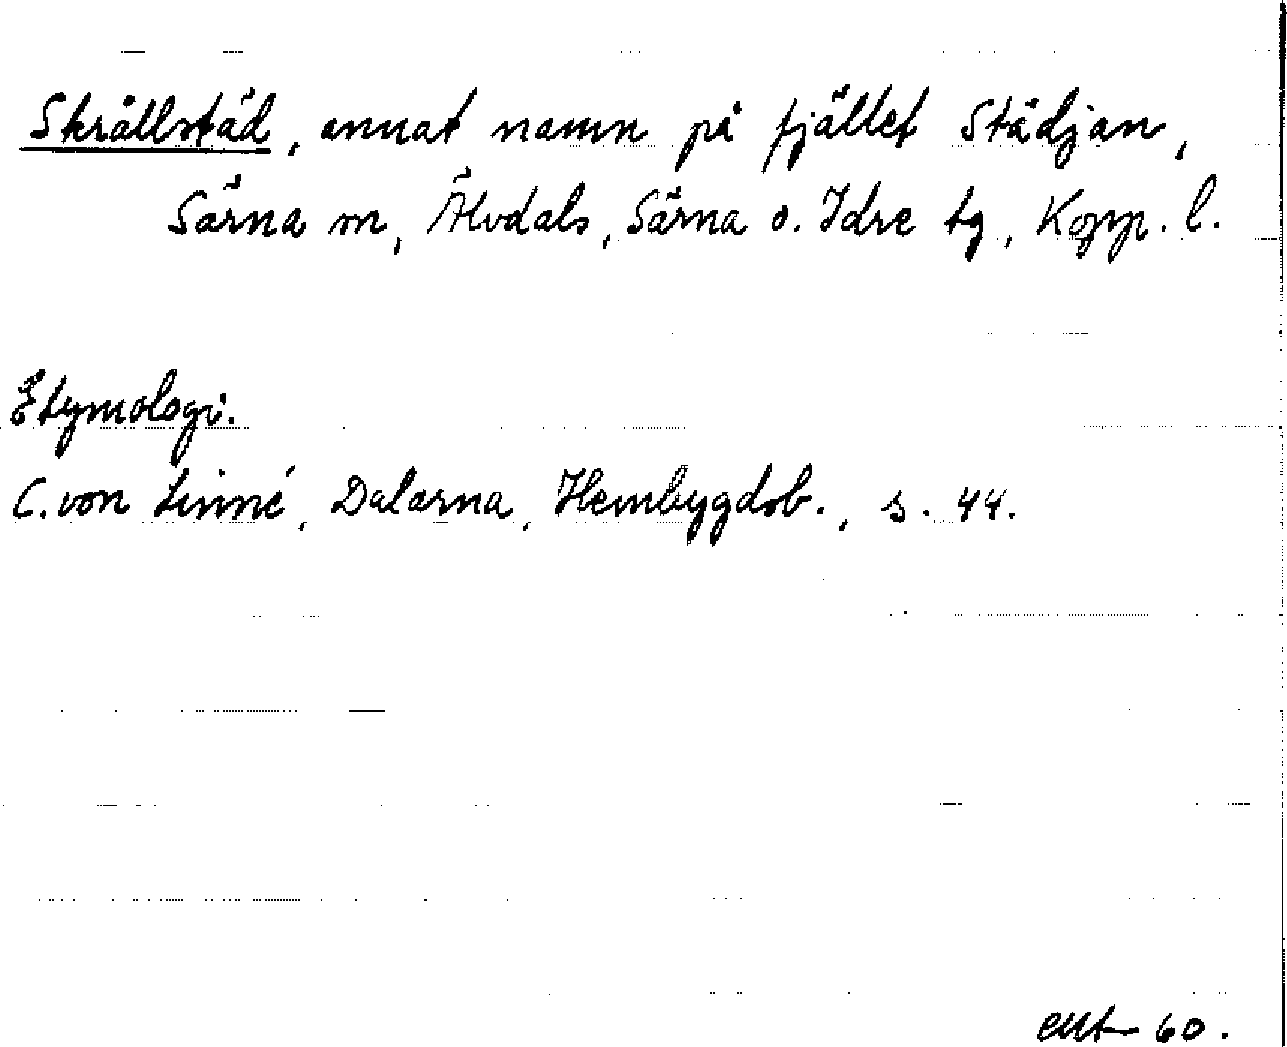 Skrållstäd, annat namn på fjället Städjan,
Särna sn, Älvdals, Särna o. Idre tg, Kopp. l.
Etymologi.
C. von Linné, Dalarna, Hembygdsb., s. 44.
60.